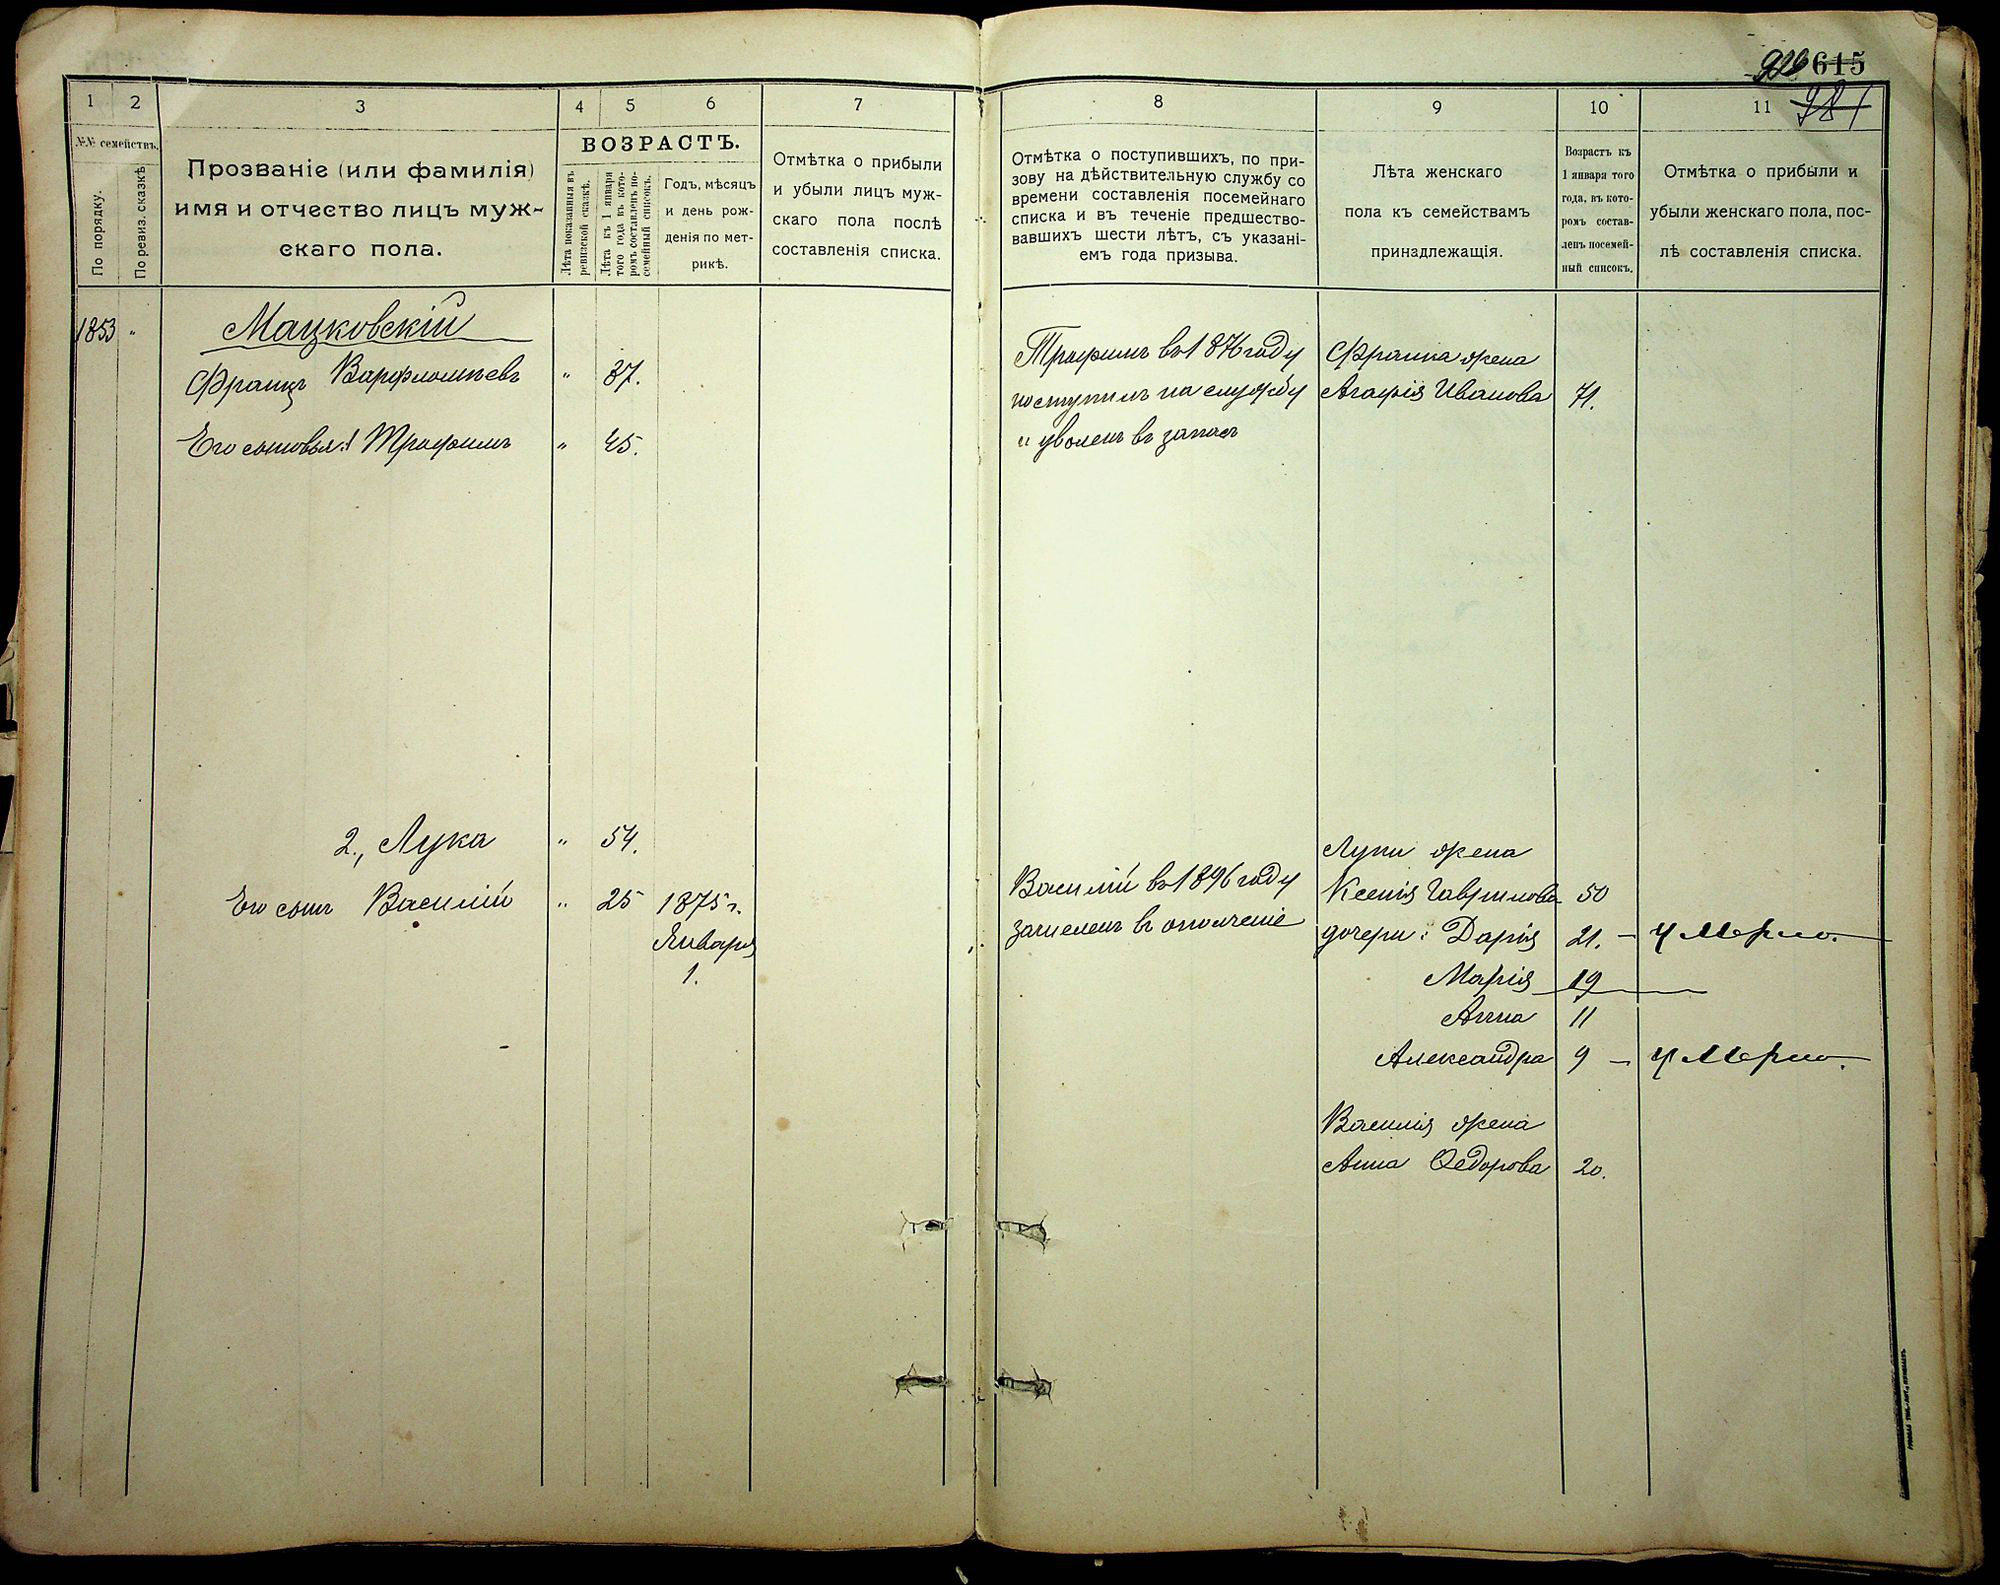 615
981
1 2 3 4 5 6 7
№№ семействъ.
По порядку.
По ревиз. сказкѣ
Прозваніе (или фамилія)
имя и отчество лицъ муж-
скаго пола.
ВОЗРАСТЪ.
Лѣта показанныя въ
ревизской сказкѣ.
Лѣта къ 1 января
того года въ кото-
ромъ составленъ по-
семейный списокъ.
Годъ, мѣсяцъ
и день рож-
денія по мет-
рикѣ.
Отмѣтка о прибыли
и убыли лицъ муж-
скаго пола послѣ
составленія списка.
1853 "
Мацковскій
Францъ Варфломѣевъ " 87.
Его сыновья: 1 Трофимъ " 45.
2., Лука " 54.
Его сынъ Василій " 25 1875 г.
Января
1.
8 9 10 11
Отмѣтка о поступившихъ, по при-
зову на дѣйствительную службу со
времени составленія посемейнаго
списка и въ теченіе предшество-
вавшихъ шести лѣтъ, съ указані-
емъ года призыва.
Лѣта женскаго
пола къ семействамъ
принадлежащія.
Возрастъ къ
1 января того
года, въ кото-
ромъ состав-
ленъ посемей-
ный списокъ.
Отмѣтка о прибыли и
убыли женскаго пола, пос-
лѣ составленія списка.
Трофимъ въ 1876 году
поступилъ на службу
и уволенъ въ запасъ
Франца жена
Агафія Иванова 71.
Василій въ 1896 году
зачисленъ въ ополченіе
Луки жена
Ксенія Гаврилова 50
дочери: Дарія 21. — умерло.
Марія 19
Анна 11
Александра 9 — умерло.
Василія жена
Анна Ѳедорова 20.